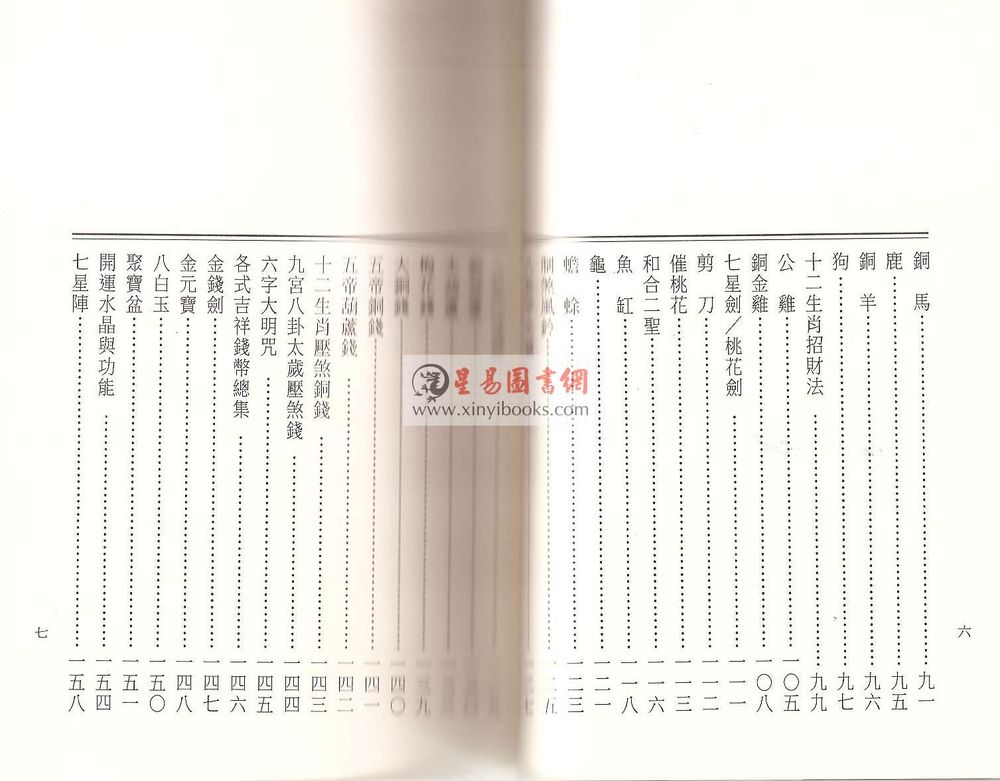 銅馬……………九一
鹿……………九五
銅羊……………九六
狗……………九七
十二生肖招財法……………九九
公雞……………一〇五
銅金雞……………一〇八
七星劍／桃花劍……………一一一
剪刀……………一一二
催桃花……………一一三
和合二聖……………一一六
魚缸……………一一八
龜……………一二一
蟾蜍……………一二三
制煞風鈴……………一二五
六
大銅錢……………一四〇
五帝銅錢……………一四一
五帝葫蘆錢……………一四二
十二生肖壓煞銅錢……………一四三
九宮八卦太歲壓煞錢……………一四四
六字大明咒……………一四五
各式吉祥錢幣總集……………一四六
金錢劍……………一四七
金元寶……………一四八
八白玉……………一五〇
聚寶盆……………一五一
開運水晶與功能……………一五四
七星陣……………一五八
七
星易圖書網
www.xinyibooks.com